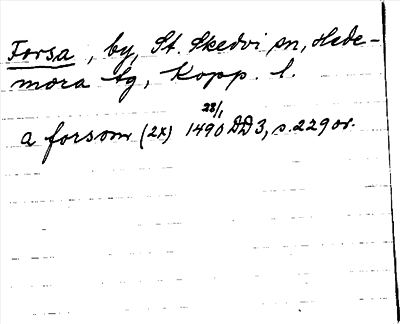 Forsa, by, St. Skedvi sn, Hede-
mora tg, Kopp. l.
22/1
a forsom (2x) 1490 DD3, s. 229 or.